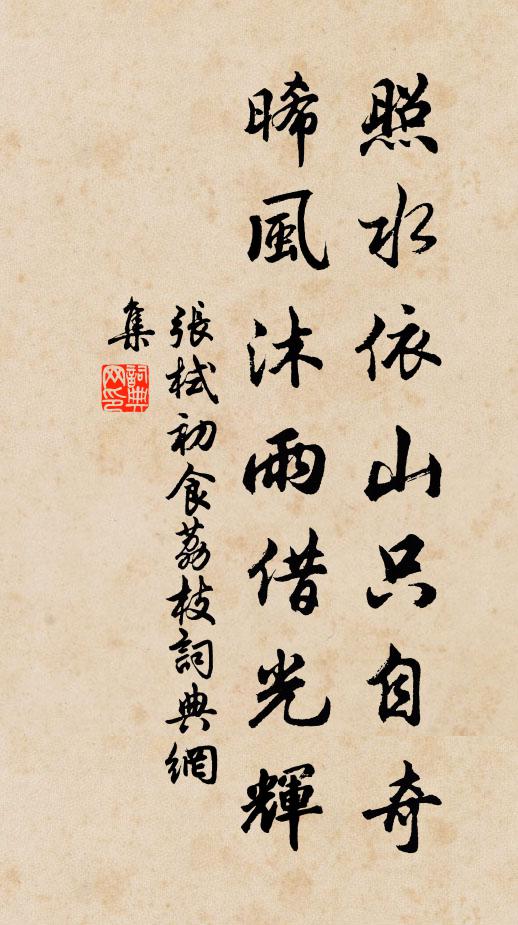 照水依山只自奇
晞風沐雨借光輝
張栻初食荔枝詞典網
集
詞典網印